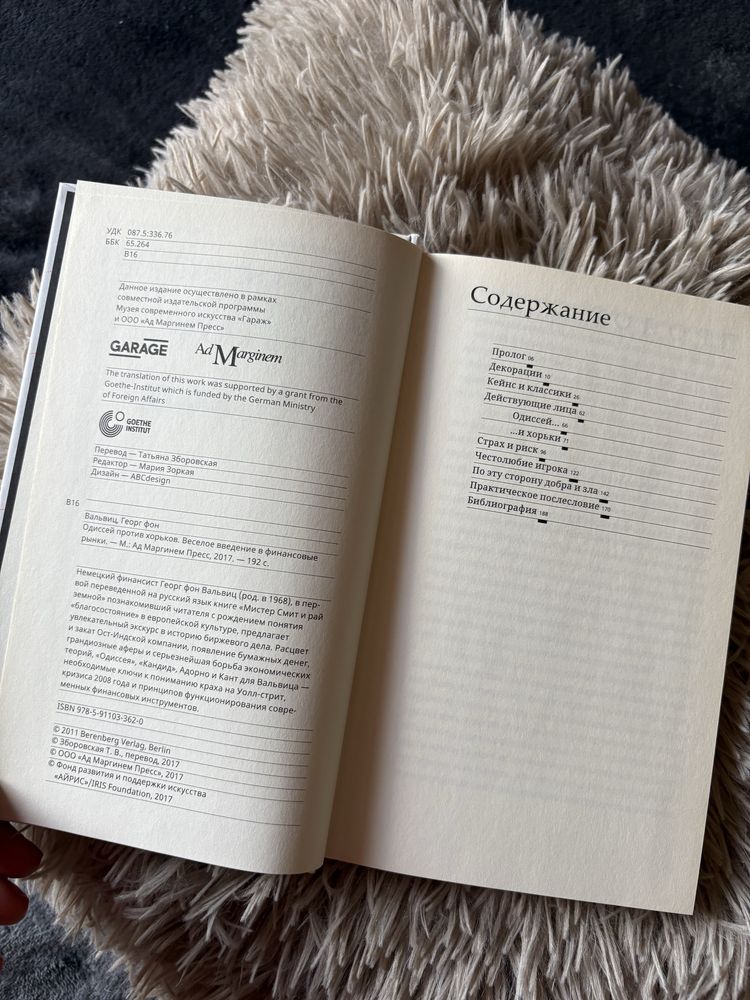 УДК 087.5:336.76
ББК 65.264
В16
Данное издание осуществлено в рамках
совместной издательской программы
Музея современного искусства «Гараж»
и ООО «Ад Маргинем Пресс»
GARAGE
Ad Marginem
The translation of this work was supported by a grant from the
Goethe-Institut which is funded by the German Ministry
of Foreign Affairs
GOETHE
INSTITUT
Перевод — Татьяна Зборовская
Редактор — Мария Зоркая
Дизайн — ABCdesign
В16
Вальвиц, Георг фон
Одиссей против хорьков. Веселое введение в финансовые
рынки. — М.: Ад Маргинем Пресс, 2017. — 192 с.
Немецкий финансист Георг фон Вальвиц (род. в 1968), в пер-
вой переведенной на русский язык книге «Мистер Смит и рай
земной» познакомивший читателя с рождением понятия
«благосостояние» в европейской культуре, предлагает
увлекательный экскурс в историю биржевого дела. Расцвет
и закат Ост-Индской компании, появление бумажных денег,
грандиозные аферы и серьезнейшая борьба экономических
теорий, «Одиссея», «Кандид», Адорно и Кант для Вальвица —
необходимые ключи к пониманию краха на Уолл-стрит,
кризиса 2008 года и принципов функционирования совре-
менных финансовых инструментов.
ISBN 978-5-91103-362-0
© 2011 Berenberg Verlag, Berlin
© Зборовская Т. В., перевод, 2017
© ООО «Ад Маргинем Пресс», 2017
© Фонд развития и поддержки искусства
«АЙРИС»/IRIS Foundation, 2017
Содержание
Пролог 06
Декорации 10
Кейнс и классики 26
Действующие лица 62
Одиссей... 66
...и хорьки 71
Страх и риск 96
Честолюбие игрока 122
По эту сторону добра и зла 142
Практическое послесловие 170
Библиография 188